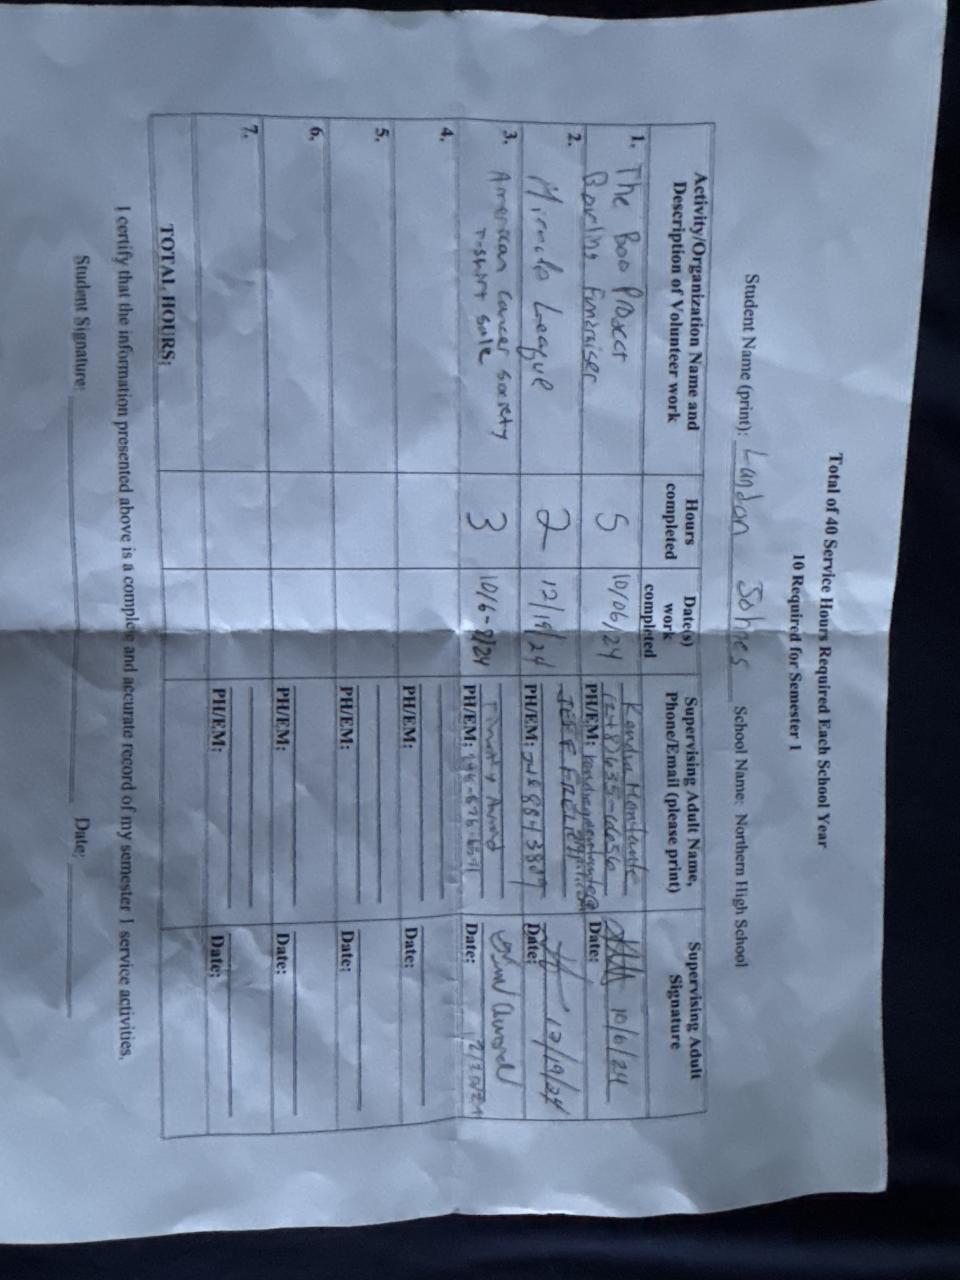 Total of 40 Service Hours Required Each School Year
10 Required for Semester 1
Student Name (print): Landon Johnes School Name: Northern High School
Activity/Organization Name and Description of Volunteer work
Hours completed
Date(s) work completed
Supervising Adult Name, Phone/Email (please print)
Supervising Adult Signature
1. The Boo Project
Bowling Fundraiser
5
10/06/24
Kendra
PH/EM:
10/6/24
Date:
2. Miracle League
2
12/19/24
JEFF
PH/EM:
12/19/24
Date:
3. American cancer society
T-shirt sale
3
10/6-8/24
PH/EM:
Date:
4.
PH/EM:
Date:
5.
PH/EM:
Date:
6.
PH/EM:
Date:
7.
PH/EM:
Date:
TOTAL HOURS:
I certify that the information presented above is a complete and accurate record of my semester 1 service activities.
Student Signature: Date: